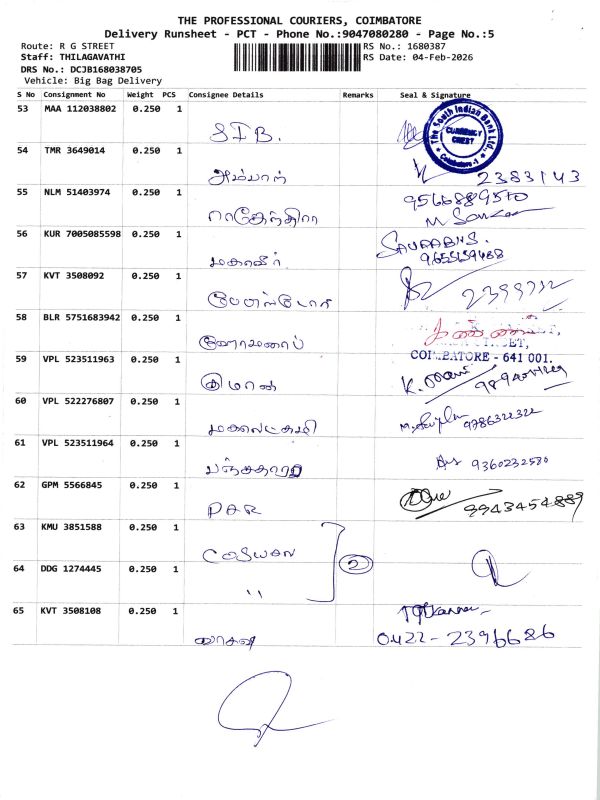 THE PROFESSIONAL COURIERS, COIMBATORE
Delivery Runsheet - PCT - Phone No.:9047080280 - Page No.:5
Route: R G STREET
RS No.: 1680387
Staff: THILAGAVATHI
RS Date: 04-Feb-2026
DRS No.: DCJB168038705
Vehicle: Big Bag Delivery
S No Consignment No Weight PCS Consignee Details Remarks Seal & Signature
53 MAA 112038802 0.250 1
S I B.
The South Indian Bank Ltd.,
CURRENCY
CHEST
Coimbatore -1
54 TMR 3649014 0.250 1
அம்பாள் 2383143
55 NLM 51403974 0.250 1
ராஜேந்திரா
56 KUR 7005085598 0.250 1
மகாவீர்
57 KVT 3508092 0.250 1
58 BLR 5751683942 0.250 1
COIMBATORE - 641 001.
59 VPL 523511963 0.250 1
60 VPL 522276807 0.250 1
மகாலட்சுமி 9786322322
61 VPL 523511964 0.250 1
9360232580
62 GPM 5566845 0.250 1
9943454889
63 KMU 3851588 0.250 1
2
64 DDG 1274445 0.250 1
"
65 KVT 3508108 0.250 1
0422-2396686